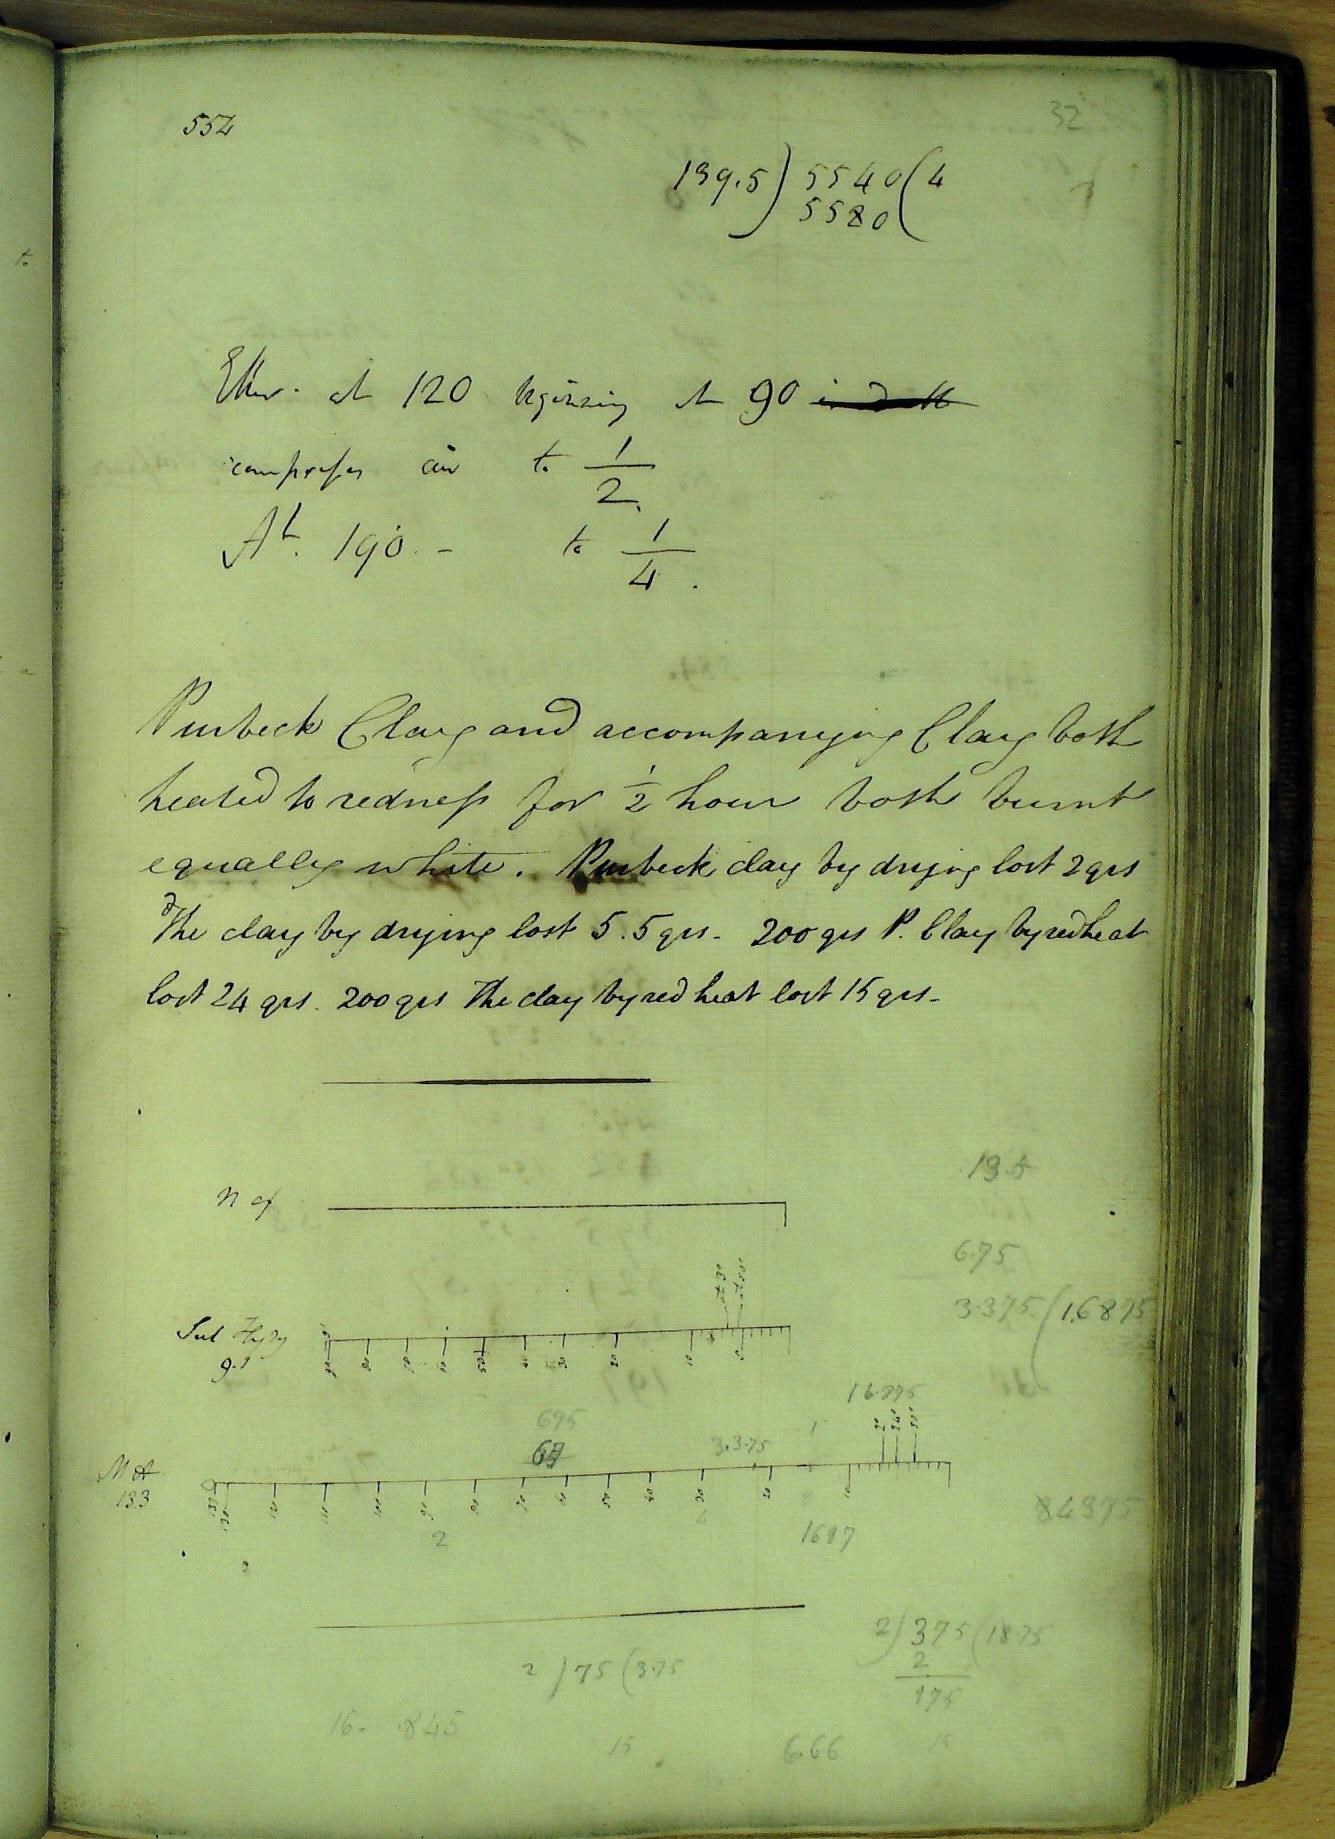 552
32
139.5) 5540 (4
5580
Ether at 120 beginning at 90
compresses air to 1/2
At. 190. - to 1/4.
Purbeck Clay and accompanying Clay both
heated to redness for 1/2 hour both burnt
equally white. Purbeck clay by drying lost 2 grs
The clay by drying lost 5.5 grs. 200 grs P. Clay by red heat
lost 24 grs. 200 grs The clay by red heat lost 15 grs.
13.5
n of
6.75
3.375 (1.6875
Sul Hydy
9.1
90 80 70 60 50 40 30 20 10 5
16.875
695
3.375
133
133 130 120 110 100 90 80 70 60 50 40 30 20 10
2
1687
84375
2) 375 (18.75
2
175
2) 75 (3.75
16. .845
15
6.66
15